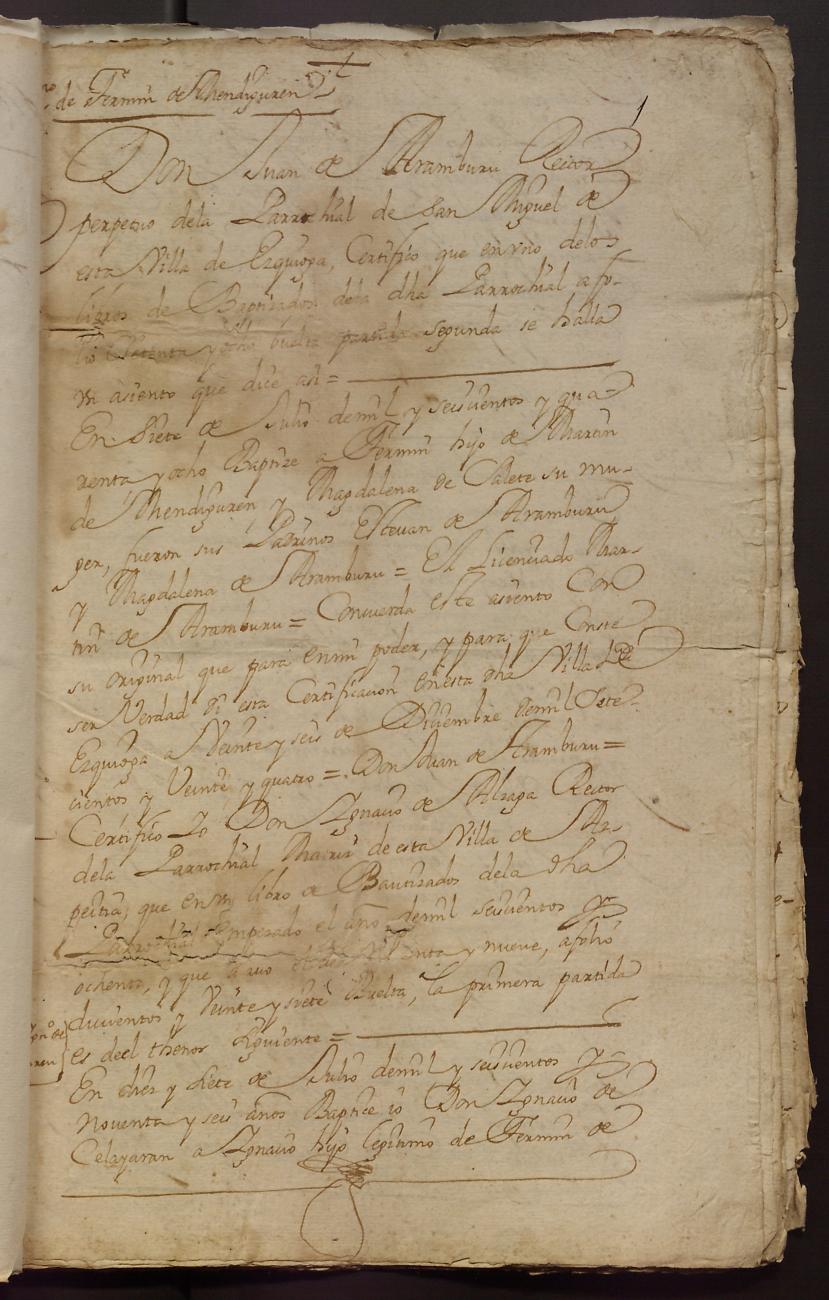 de Fermin de Mendiguren
1
Don Juan de Aramburu Retor
perpetuo dela Parrochial de San Miguel de
esta Villa de Ezquioga, Certifico que en vno delos
libros de Baptizados dela dha Parrochial a fo-
lio setenta y ocho buelta partida segunda se halla
vn asiento que dice asi =
En Siete de Julio demil y seiscientos y qua-
renta y ocho Baptize a Fermin hijo de Martin
de Mendiguren y Magdalena de Zalete su mu-
ger, fueron sus Padrinos Estevan de Aramburu
y Magdalena de Aramburu = El Licenciado Mar-
tin de Aramburu = Concuerda este asiento Con
su original que para en mi poder, y para que Conste
ser Verdad di esta Certificacion en esta dha Villa de
Ezquioga a Veinte y seis de Diciembre demil Sete-
cientos y Veinte y quatro = Don Juan de Aramburu =
Certifico Yo Don Ygnacio de Alzaga Rector
dela Parrochial Matriz de esta Villa de Az-
peitia, que en vn libro de Bautizados dela dha
Parrochial empezado el año demil seiscientos y
ochenta, y que el de noventa y nueve, a folio
ducientos y Veinte y siete Buelta, la primera partida
es deel thenor siguiente =
En diez y siete de Julio demil y seiscientos y
noventa y seis años Baptize io Don Ygnacio de
Celayaran a Ygnacio hijo legitimo de Fermin de